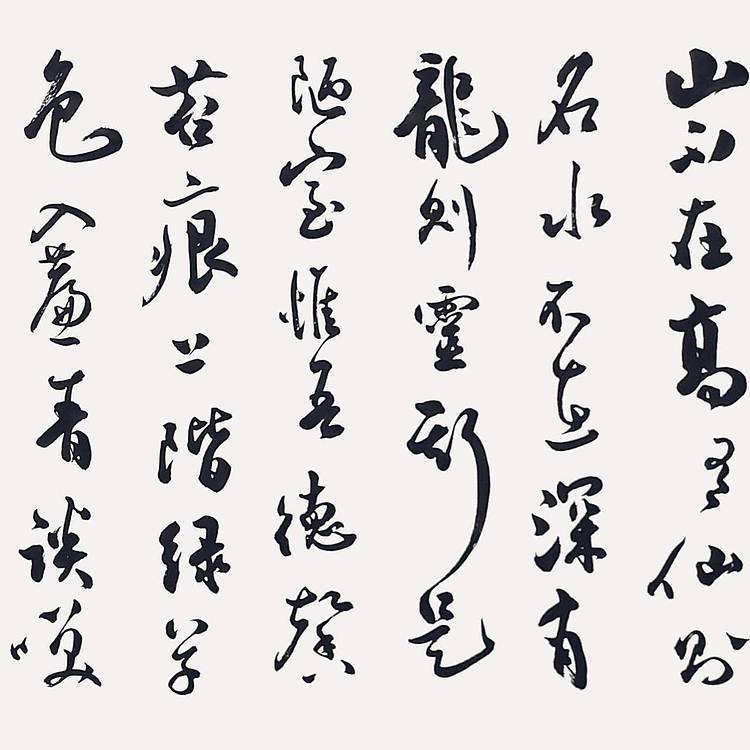 山不在高有仙则
名水不在深有
龍则靈斯是
陋室惟吾德馨
苔痕上階緑草
色入簾青談咲